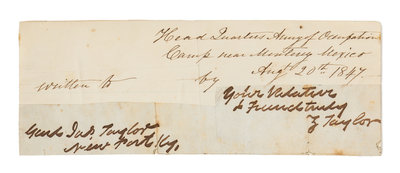 Head Quarters Army of Occupation
Camp near Monterey Mexico
Augt 20th 1847
written to by
Your Relative
& Friend truly
Z Taylor
Genl Jas Taylor
New Port Ky,